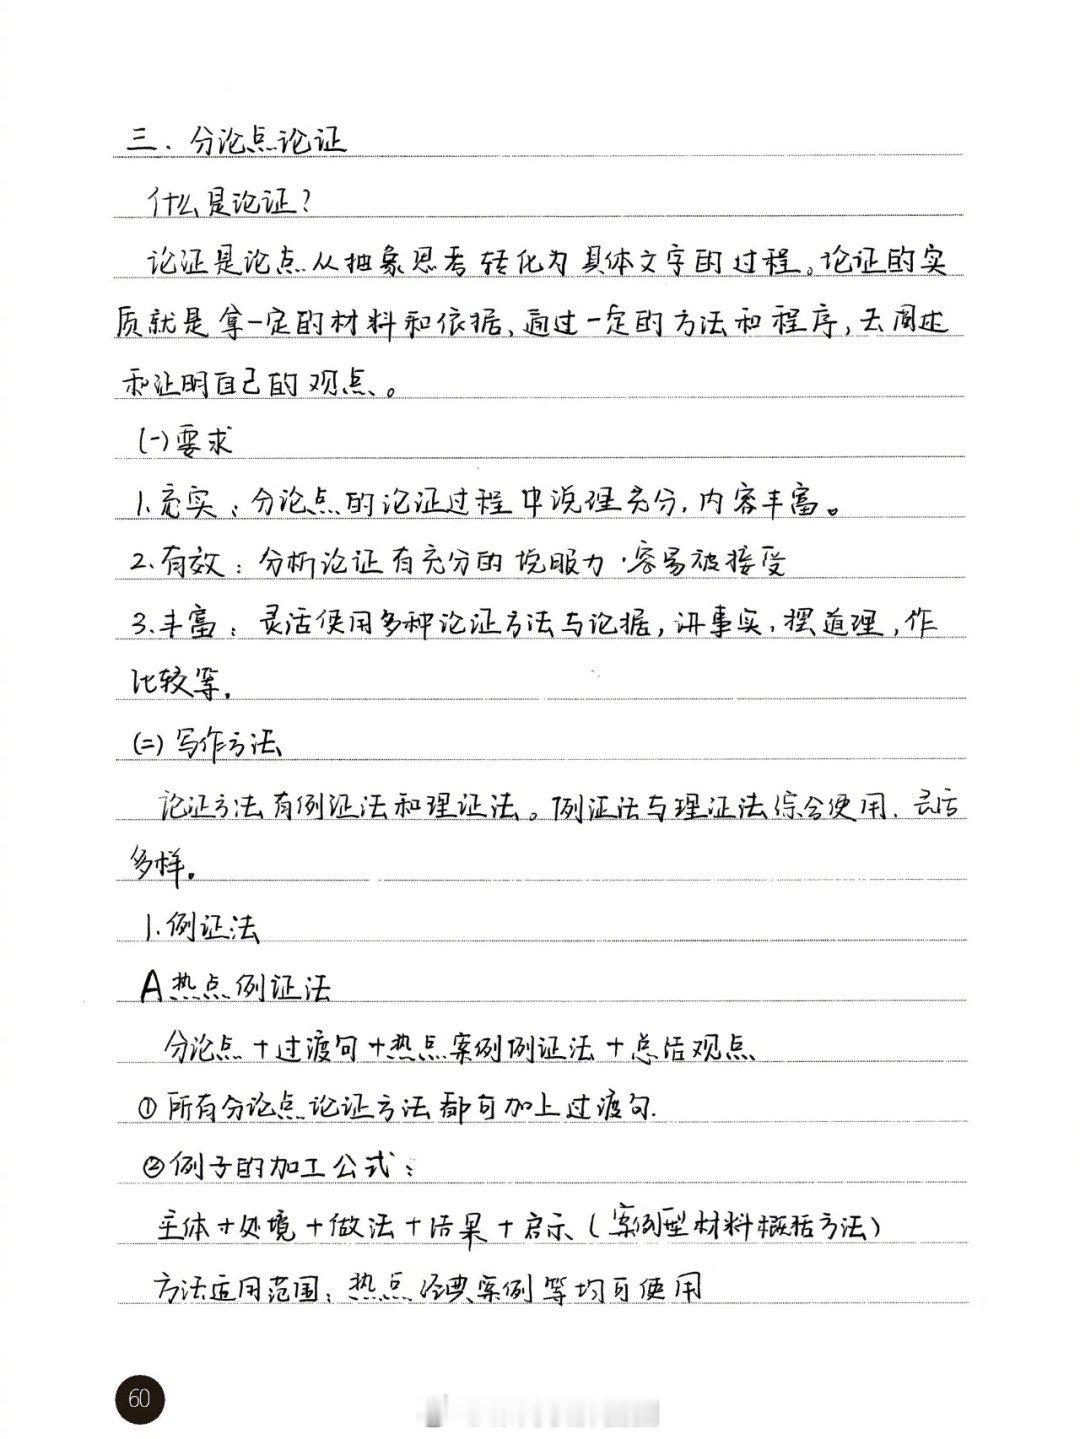 三.分论点论证
什么是论证?
论证是论点从抽象思考转化为具体文字的过程。论证的实
质就是拿一定的材料和依据、通过一定的方法和程序,去阐述
和证明自己的观点。
(一)要求
1.充实:分论点的论证过程中说理充分,内容丰富。
2.有效:分析论证有充分的说服力.容易被接受
3.丰富:灵活使用多种论证方法与论据,讲事实,摆道理,作
比较等.
(二)写作方法
论证方法有例证法和理证法。例证法与理证法综合使用.灵活
多样.
1.例证法
A热点例证法
分论点+过渡句+热点案例例证法+总结观点
①所有分论点论证方法都可加上过渡句.
②例子的加工公式:
主体+处境+做法+结果+启示(案例型材料概括方法)
方法适用范围:热点经典案例等均可使用
60